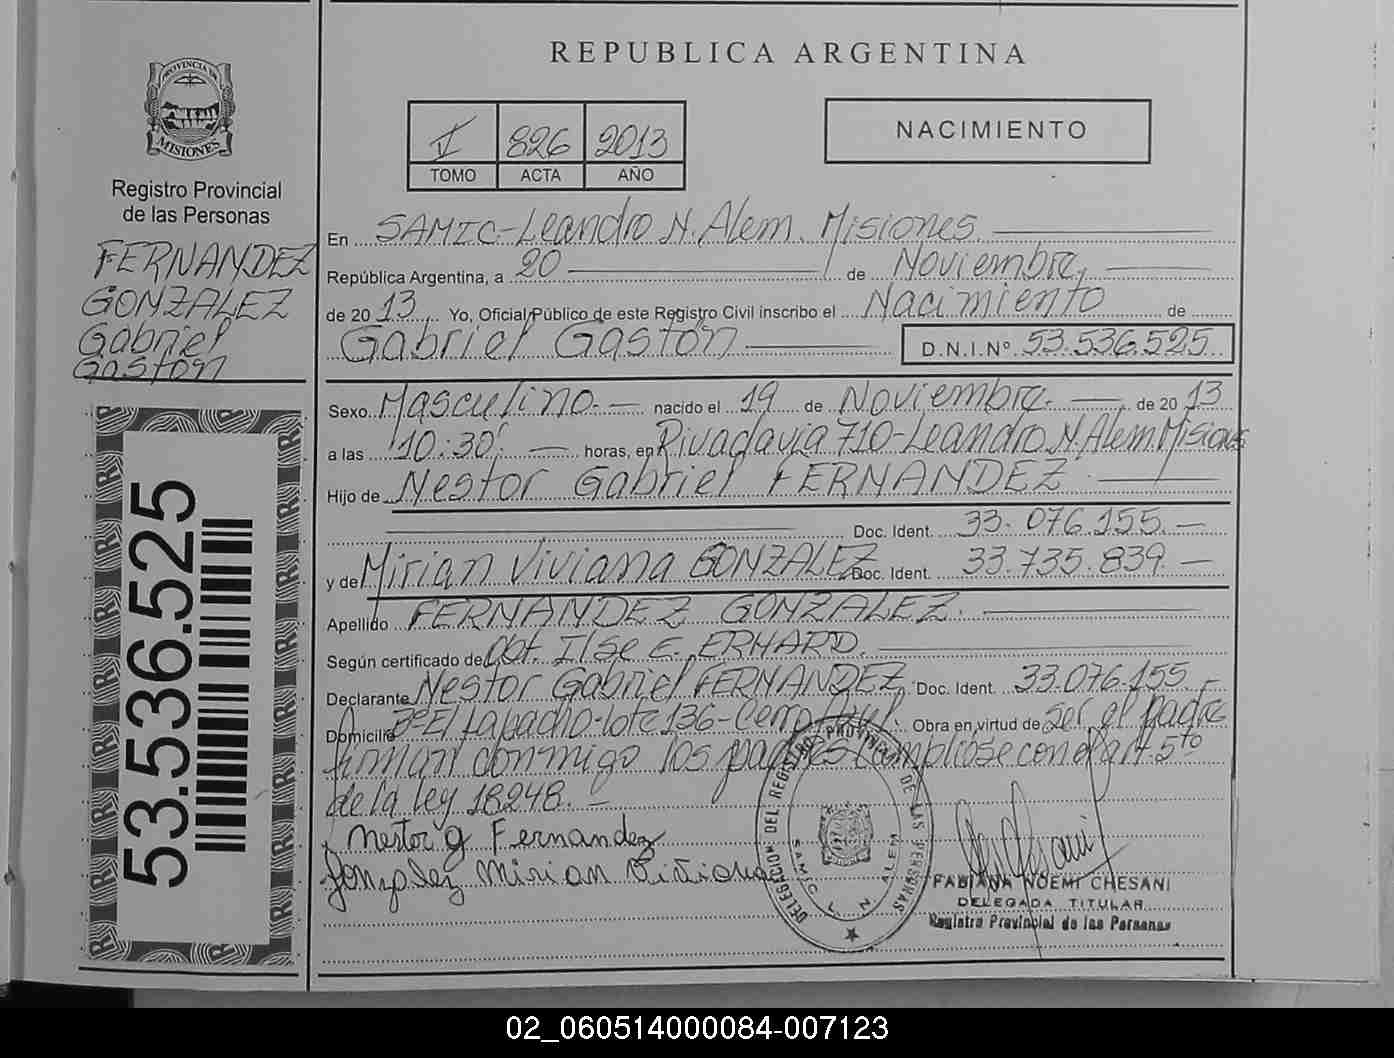 REPUBLICA ARGENTINA
PROVINCIA DE
MISIONES
Registro Provincial
de las Personas
FERNANDEZ
GONZALEZ
Gabriel
Gastón
53.536.525
V 826 2013
TOMO ACTA AÑO
NACIMIENTO
En SAMIC-Leandro N. Alem. Misiones
República Argentina, a 20 de Noviembre,
de 20 13 Yo, Oficial Público de este Registro Civil inscribo el Nacimiento de
Gabriel Gastón D.N.I.Nº 53.536.525
Sexo Masculino.- nacido el 19 de Noviembre.- de 20 13
a las 10:30' - horas, en Rivadavia 710-Leandro N. Alem Misiones
Hijo de Nestor Gabriel FERNANDEZ
Doc. Ident. 33.076.155.-
y de Mirian Viviana GONZALEZ Doc. Ident. 33.735.839.-
Apellido FERNANDEZ GONZALEZ.
Según certificado de Obt. Ilse E. ERHARD.
Declarante Nestor Gabriel FERNANDEZ Doc. Ident. 33.076.155
Domicilio Bº El Lapacho-lote 136-Cerro Azul. Obra en virtud de ser el padre
firman conmigo los padres cumpliose con el art 5to
de la ley 18248.-
Nestor g Fernandez
Gonzalez Mirian Viviana
DELEGACION DEL REGISTRO PROVINCIAL DE LAS PERSONAS
SAMIC L. N. ALEM
FABIANA NOEMI CHESANI
DELEGADA TITULAR
Registro Provincial de las Personas
02_060514000084-007123